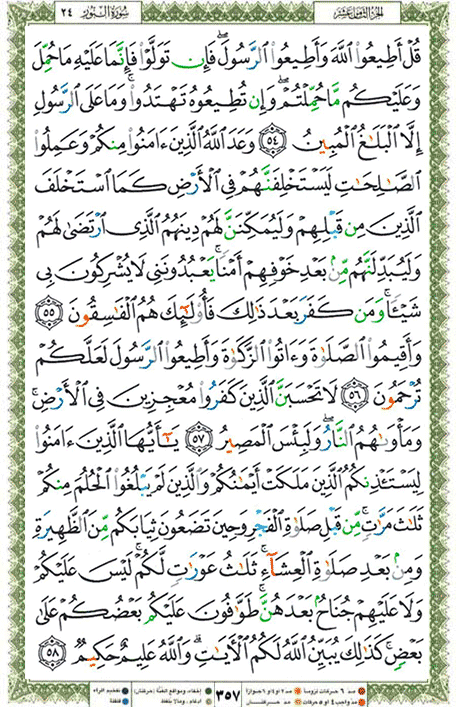 سُورَةُ النُّورِ ٢٤
الجزء الثامن عشر
قُلْ أَطِيعُوا۟ ٱللَّهَ وَأَطِيعُوا۟ ٱلرَّسُولَ ۖ فَإِن تَوَلَّوْا۟ فَإِنَّمَا عَلَيْهِ مَا حُمِّلَ
وَعَلَيْكُم مَّا حُمِّلْتُمْ ۖ وَإِن تُطِيعُوهُ تَهْتَدُوا۟ ۚ وَمَا عَلَى ٱلرَّسُولِ
إِلَّا ٱلْبَلَٰغُ ٱلْمُبِينُ ٥٤ وَعَدَ ٱللَّهُ ٱلَّذِينَ ءَامَنُوا۟ مِنكُمْ وَعَمِلُوا۟
ٱلصَّٰلِحَٰتِ لَيَسْتَخْلِفَنَّهُمْ فِى ٱلْأَرْضِ كَمَا ٱسْتَخْلَفَ
ٱلَّذِينَ مِن قَبْلِهِمْ وَلَيُمَكِّنَنَّ لَهُمْ دِينَهُمُ ٱلَّذِى ٱرْتَضَىٰ لَهُمْ
وَلَيُبَدِّلَنَّهُم مِّنۢ بَعْدِ خَوْفِهِمْ أَمْنًا ۚ يَعْبُدُونَنِى لَا يُشْرِكُونَ بِى
شَيْـًٔا ۚ وَمَن كَفَرَ بَعْدَ ذَٰلِكَ فَأُو۟لَٰٓئِكَ هُمُ ٱلْفَٰسِقُونَ ٥٥
وَأَقِيمُوا۟ ٱلصَّلَوٰةَ وَءَاتُوا۟ ٱلزَّكَوٰةَ وَأَطِيعُوا۟ ٱلرَّسُولَ لَعَلَّكُمْ
تُرْحَمُونَ ٥٦ لَا تَحْسَبَنَّ ٱلَّذِينَ كَفَرُوا۟ مُعْجِزِينَ فِى ٱلْأَرْضِ ۚ
وَمَأْوَىٰهُمُ ٱلنَّارُ ۖ وَلَبِئْسَ ٱلْمَصِيرُ ٥٧ يَٰٓأَيُّهَا ٱلَّذِينَ ءَامَنُوا۟
لِيَسْتَـْٔذِنكُمُ ٱلَّذِينَ مَلَكَتْ أَيْمَٰنُكُمْ وَٱلَّذِينَ لَمْ يَبْلُغُوا۟ ٱلْحُلُمَ مِنكُمْ
ثَلَٰثَ مَرَّٰتٍ ۚ مِّن قَبْلِ صَلَوٰةِ ٱلْفَجْرِ وَحِينَ تَضَعُونَ ثِيَابَكُم مِّنَ ٱلظَّهِيرَةِ
وَمِنۢ بَعْدِ صَلَوٰةِ ٱلْعِشَآءِ ۚ ثَلَٰثُ عَوْرَٰتٍ لَّكُمْ ۚ لَيْسَ عَلَيْكُمْ
وَلَا عَلَيْهِمْ جُنَاحٌۢ بَعْدَهُنَّ ۚ طَوَّٰفُونَ عَلَيْكُم بَعْضُكُمْ عَلَىٰ
بَعْضٍ ۚ كَذَٰلِكَ يُبَيِّنُ ٱللَّهُ لَكُمُ ٱلْءَايَٰتِ ۗ وَٱللَّهُ عَلِيمٌ حَكِيمٌ ٥٨
٣٥٧
مد ٦ حركات لزوماً مد ٢ او ٤ او ٦ جوازاً
مد واجب ٤ او ٥ حركات مد حركتان
إخفاء، ومواقع الغنة (حركتان)
ادغام، وما لا يلفظ
تفخيم الراء
قلقلة